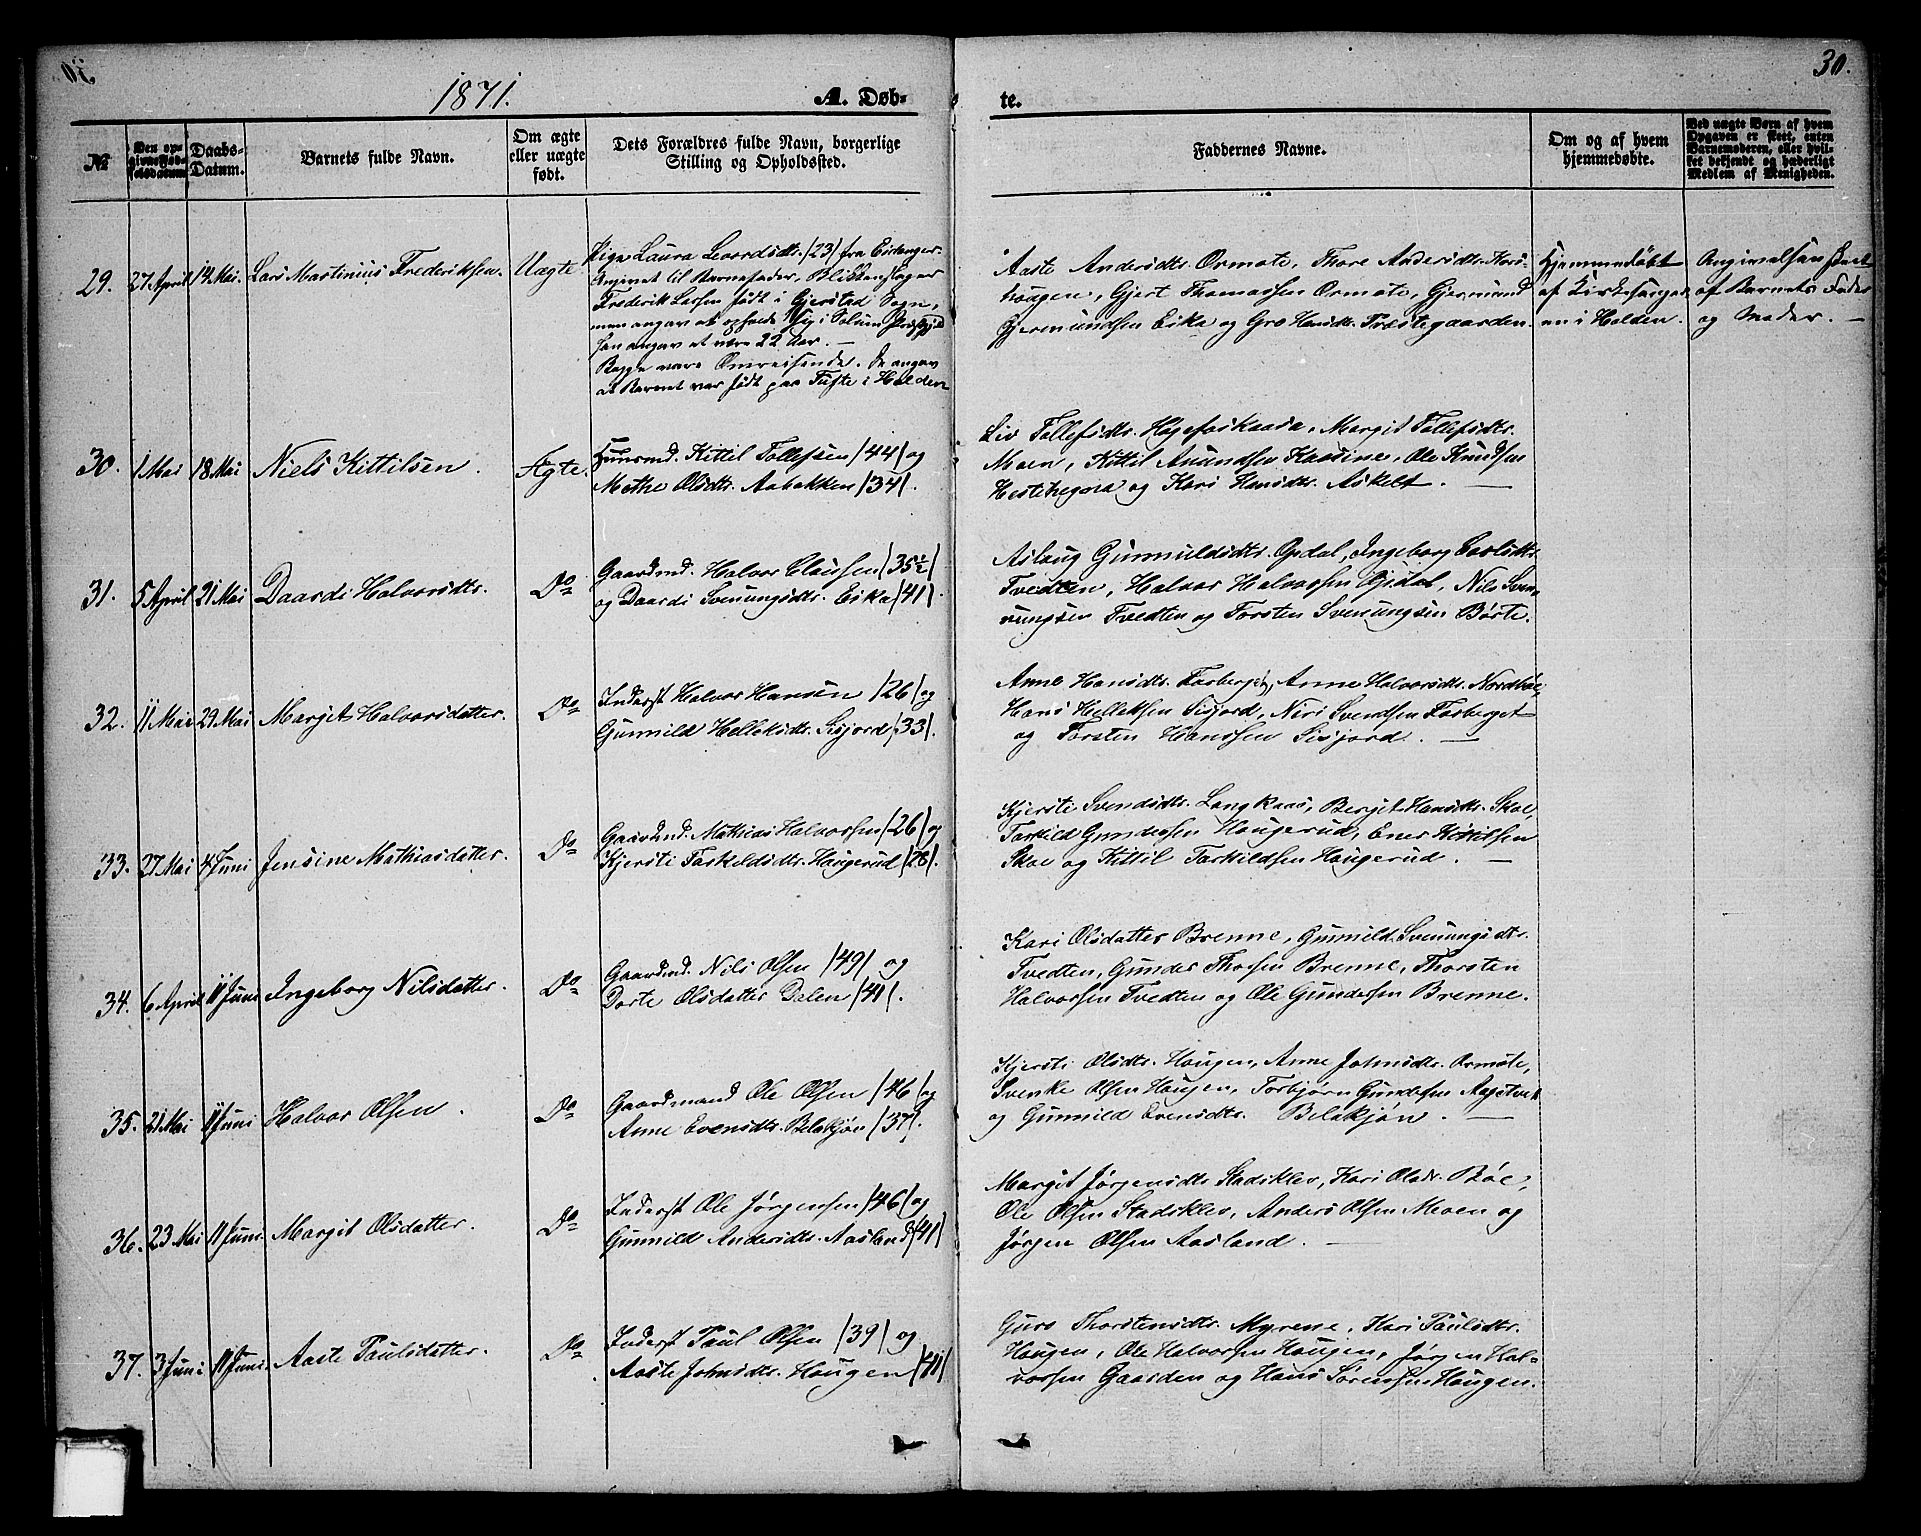 1871.
A. Døb-
te.
30.
№
Den op-
givne Fød-
selsdatum
Daabs-
Datum.
Barnets fulde Navn.
Om ægte
eller uægte
født.
Dets Forældres fulde Navn, borgerlige
Stilling og Opholdssted.
Faddernes Navne.
Om og af hvem
hjemmedøbte.
Ved uægte Børn af hvem
Opgaven er skeet, enten
Barnemoderen, eller hvil-
ket bekjendt og hæderligt
Medlem af Menigheden.
29. 27 April 14 Mai. Lars Martinius Frederiksen. Uægte.
Pige Laura Leordsdtr. /23/ fra Eidanger.
Angivet til Barnefader, Blikkenslager
Frederik Larsen født i Gjerstad Sogn,
men angav at opholde sig i Solum Præstegjld
han angav at være 22 Aar. —
Begge vare Omreisende. De angav
at Barnet var født paa Tufte i Holden
Aaste Andersdtr. Ormote, Thore Andersdtr.
haugen, Gjert Thomassen Ormote, Gjermund
Gjermundsen Eika og Gro Hansdtr. Præstegaarden.
Hjemmedøbt
af Kirkesanger
en i Holden.
Angivelsen skeet
af Barnets Fader
og Moder. —
30. 1 Mai 18 Mai Niels Kittilsen. Ægte.
Huusmd. Kittil Tollefsen /44/ og
Methe Olsdtr. Aabakken /34/.
Liv Tollefsdtr. Høgefoskaasa, Margit Tollefsdtr.
Moen, Kittil Amundsen Kaasine, Ole Knudsen
Hestehegna og Kari Hansdtr. Askelt. —
31. 5 April 21 Mai Daardi Halvorsdtr. Do
Gaardmd. Halvor Clausen /35½/
og Daardi Svenungsdtr. Eika /41/.
Aslaug Gunnuldsdtr. Opdal, Ingeborg
Tvedten, Halvor Halvorsen Opdal, Nils Sven-
ungsen Tvedten og Torsten Svenungsen Børte.
32. 11 Mai 29 Mai Margit Halvorsdatter. Do
Inderst Halvor Hansen /26/ og
Gunnild Helleksdtr. Sisjord /33/.
Anne Hansdtr. Forberget, Anne Halvorsdtr. Nordbøe
Hans Helleksen Sisjord, Niri Svendsen Forberget
og Torsten Hanssen Sisjord. —
33. 27 Mai 4 Juni Jensine Mathiasdatter. Do
Gaardmd. Mathias Halvorsen /26/ og
Kjersti Tarkeldsdtr. Haugerud /26/.
Kjersti Svendsdtr. Langkaas, Berget Hansdtr. Skoe,
Tarkild Gundersen Haugerud, Ener Kittilsen
Skoe og Kittil Tarkildsen Haugerud. —
34. 6 April 11 Juni Ingeborg Nilsdatter. Do
Gaardmd. Nils Olsen /49/ og
Dorte Olsdatter Dalen /41/.
Kari Olsdatter Brenne, Gunnild Svenungsdtr.
Tvedten, Gunder Thorsen Brenne, Thorsten
Halvorsen Tvedten og Ole Gundersen Brenne.
35. 21 Mai 11 Juni Halvor Olsen. Do
Gaardmand Ole Olsen /46/ og
Anne Evensdtr. Belakjøn /37/.
Kjersti Olsdtr. Haugen, Anne Johnsdtr. Ormote,
Svenke Olsen Haugen, Torbjørn Gundersen
og Gunnild Evensdtr. Belakjøn. —
36. 23 Mai 11 Juni. Margit Olsdatter. Do
Inderst Ole Jørgensen /46/ og
Gunnild Andersdtr. Aasland /41/
Margit Jørgensdtr. Stadsklev, Kari Olsdtr. Bøe,
Ole Olsen Stadsklev, Anders Olsen Moen og
Jørgen Olsen Aasland. —
37. 3 Juni 11 Juni. Aaste Paulsdatter. Do
Inderst Paul Olsen /39/ og
Aaste Johnsdtr. Haugen /41/
Guro Thorstensdtr. Myrene, Kari Paulsdtr.
Haugen, Ole Halvorsen Haugen, Jørgen Hal-
vorsen Gaarden og Hans Sørensen Haugen.